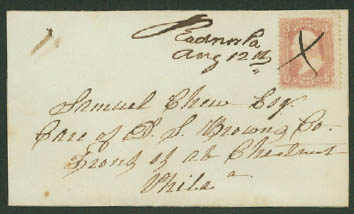 Radnor Pa
Aug 12th
Samuel Chew Esq
Care of D. S. Browng Co.
Front st ab Chestnut
Phila